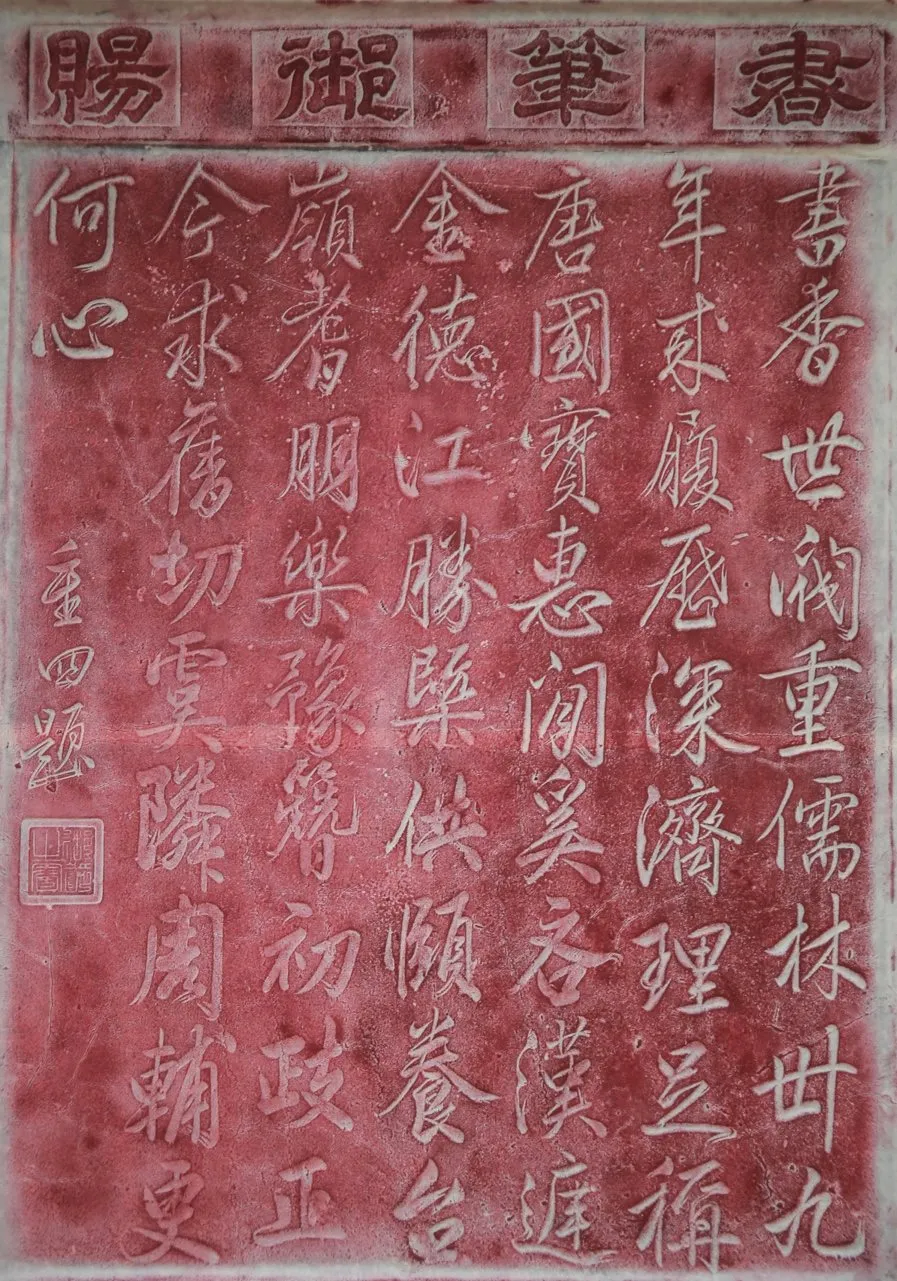 書筆御賜
書香世重儒林卌九
年來履歷深濟理足稱
唐國寶惠閒奚吝漢
金德江勝槩供頤養台
嶺耆朋樂豫簪初政正
今求舊切虞隣周輔更
何心
重四題